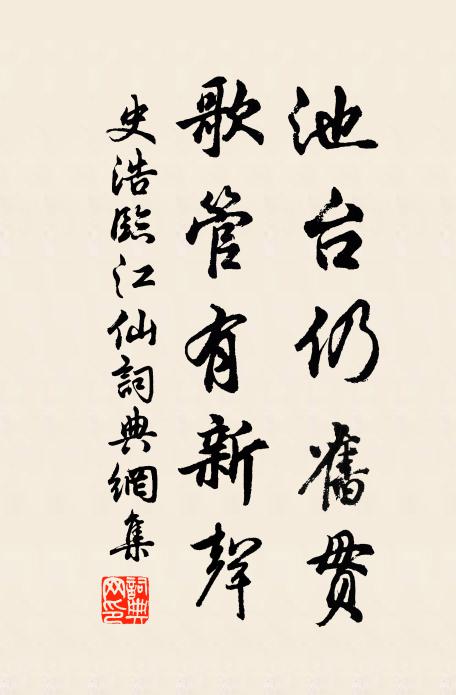 池台仍舊贯
歌管有新聲
史浩臨江仙詞典網集
詞典網印